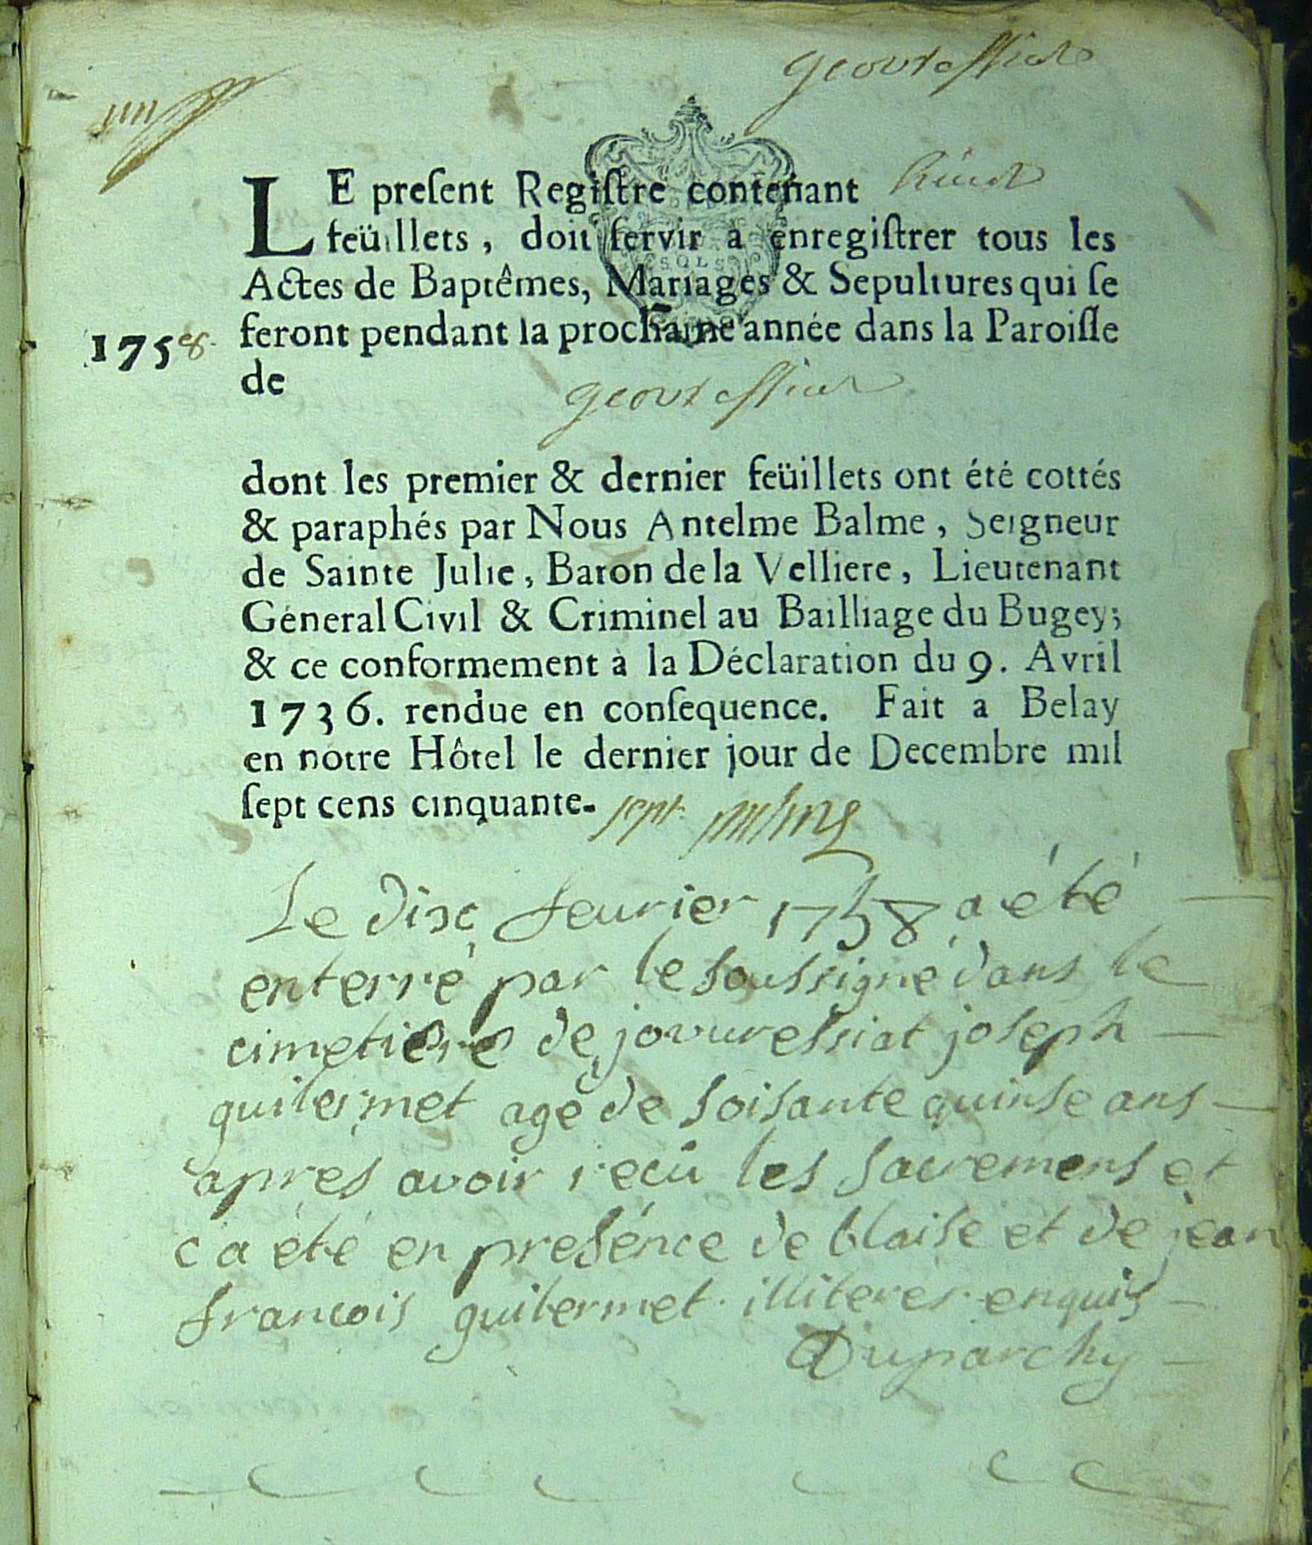 LE preſent Regiſtre contenant huict
feüillets, doit ſervir a enregiſtrer tous les
Actes de Baptêmes, Mariages & Sepultures qui ſe
1758. feront pendant la prochaine année dans la Paroiſſe
de
dont les premier & dernier feüillets ont été cottés
& paraphés par Nous Antelme Balme, Seigneur
de Sainte Julie, Baron de la Velliere, Lieutenant
Géneral Civil & Criminel au Bailliage du Bugey;
& ce conformement à la Déclaration du 9. Avril
1736. rendue en conſequence. Fait a Belay
en notre Hôtel le dernier jour de Decembre mil
ſept cens cinquante- sept
Le disc feurier 1758 a été
enterré par le soussigné dans le
cimetiere de jovuressiat joseph
guilermet agé de soisante quinse ans
apres avoir recu les sacremens et
c a été en presénce de blaise et de jean
francois guilermet illiterés enquis
Duparchy